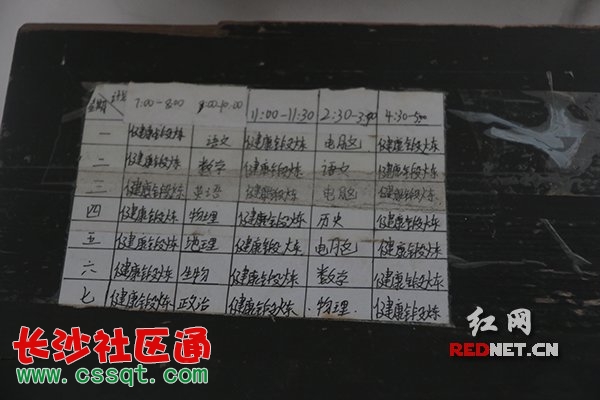 星期 计划 7:00-8:00 9:00-10:00 11:00-11:30 2:30-3:30 4:30-5:00
一 健康锻炼 语文 健康锻炼 电脑 健康锻炼
二 健康锻炼 数学 健康锻炼 语文 健康锻炼
三 健康锻炼 英语 健康锻炼 电脑 健康锻炼
四 健康锻炼 物理 健康锻炼 历史 健康锻炼
五 健康锻炼 地理 健康锻炼 电脑 健康锻炼
六 健康锻炼 生物 健康锻炼 数学 健康锻炼
七 健康锻炼 政治 健康锻炼 物理 健康锻炼
长沙社区通
www.cssqt.com
红网
REDNET.CN